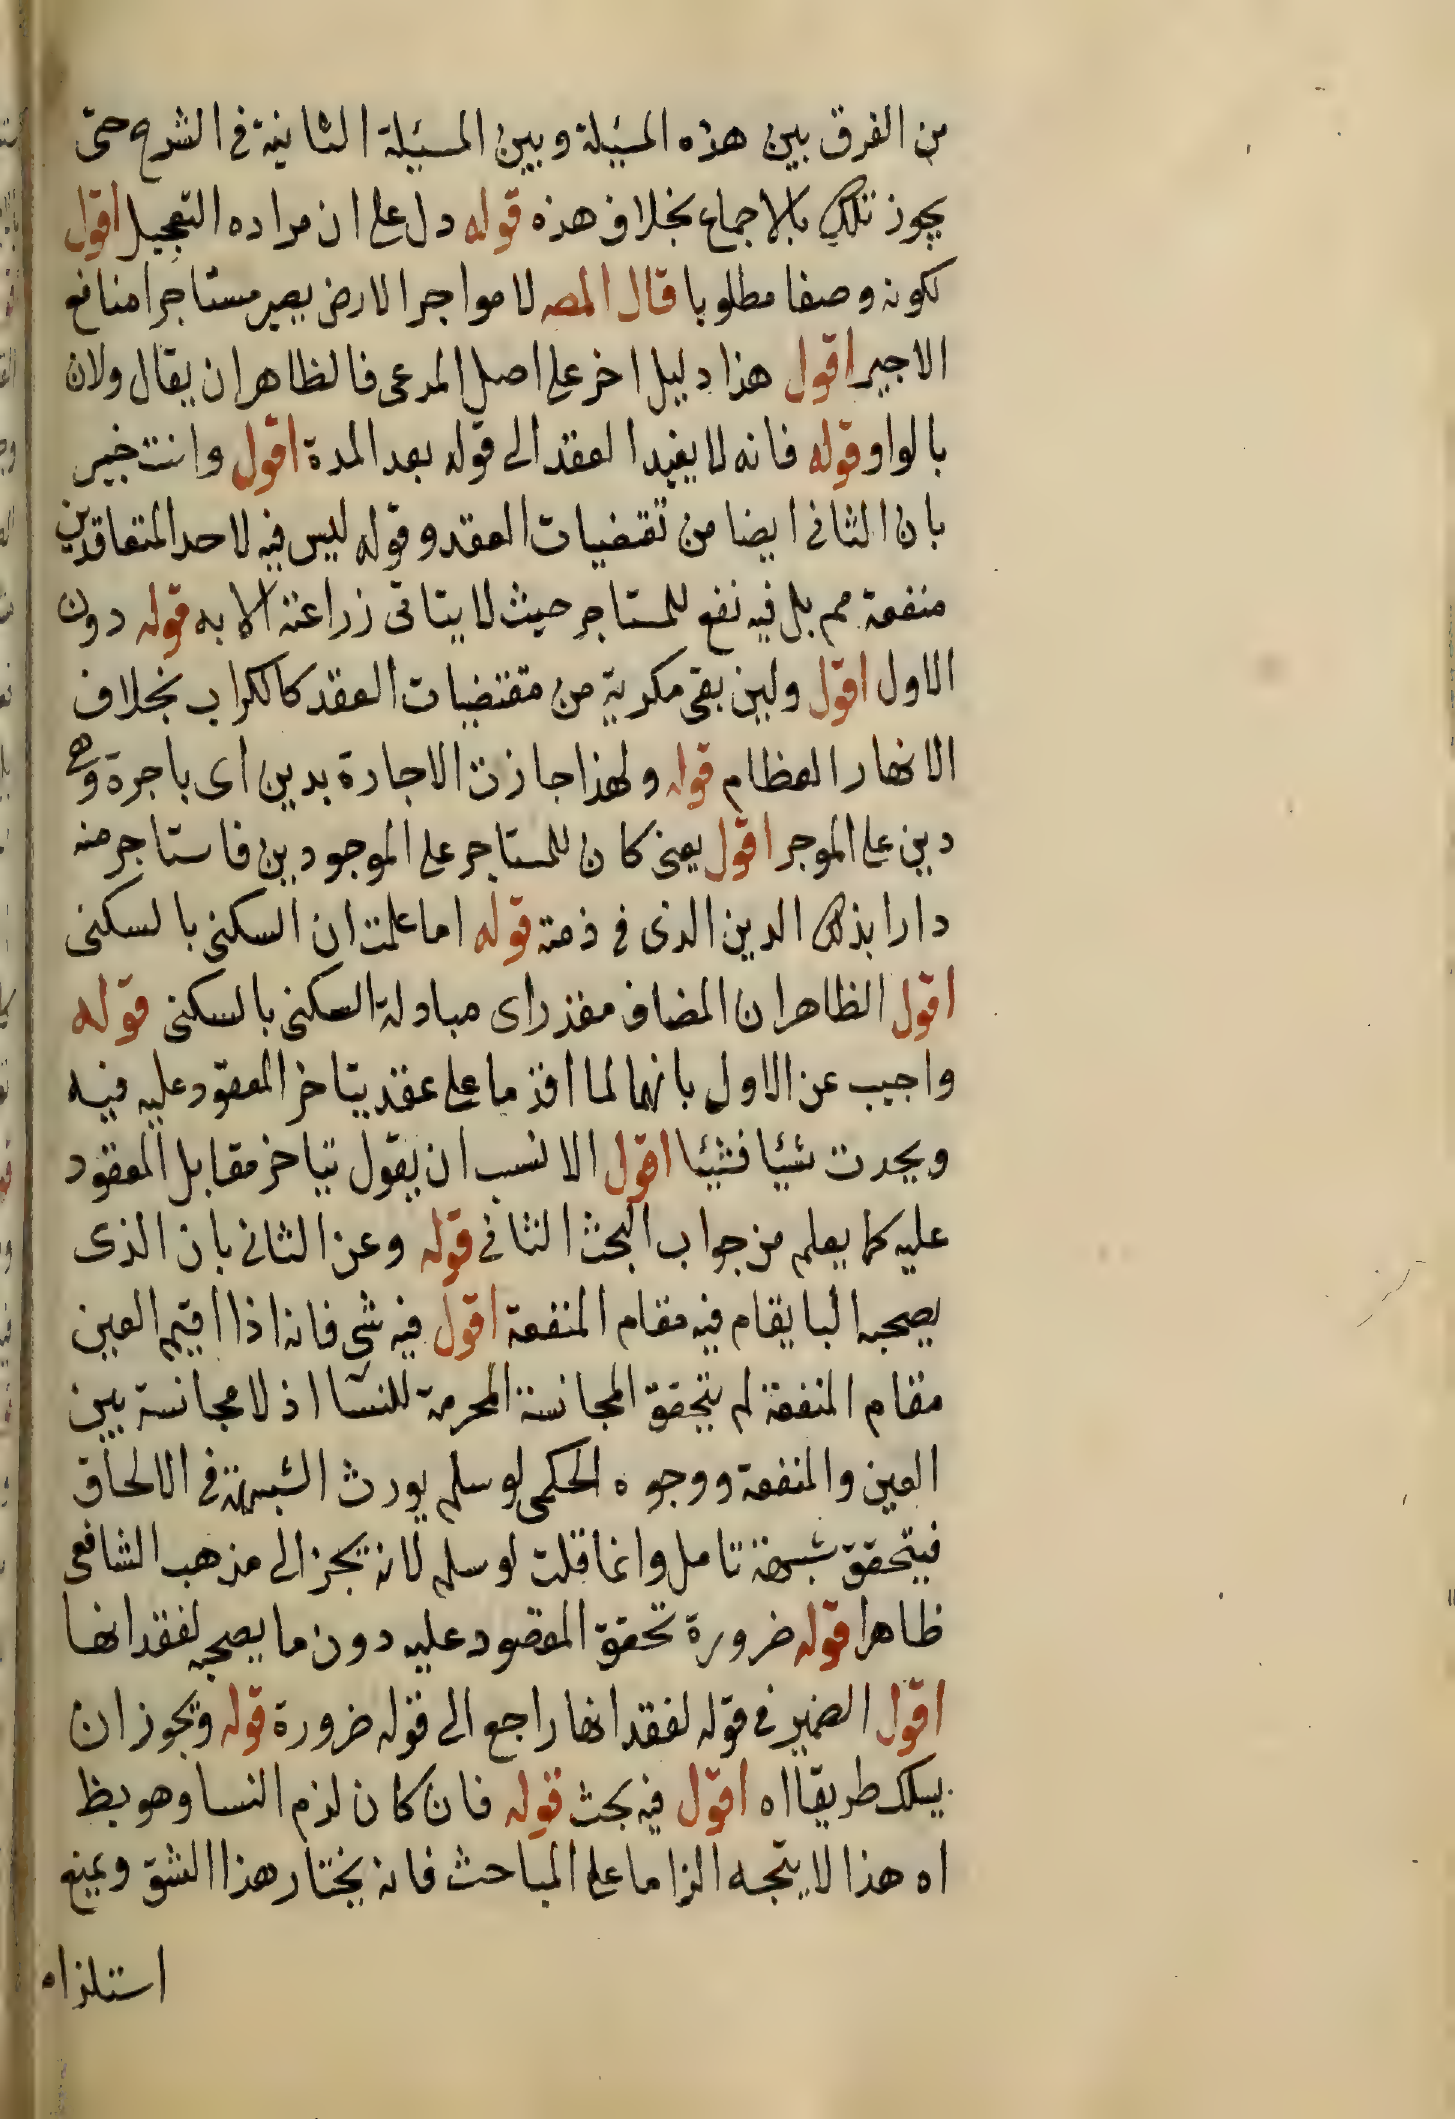 من الفرق بين هذه المسيلة وبين المسيلة الثانية في الشرح حتى
يجوز تلك بالاجماع بخلاف هذه قوله دل على ان مراده التعجيل اقول
لكونه وصفا مطلوبا قال المصه لا مواجر الارض يصير مستاجرا منافع
الاجير اقول هذا دليل اخر على اصل المدعى فالظاهر ان يقال ولان
بالواو قوله فانه لا يفيد العقد الى قوله بعد المدة اقول وانت خبير
بان الثاني ايضا من تقتضيات العقد وقوله ليس فيه لاحد المتعاقدين
منفعة مم بل فيه نفع للمستاجر حيث لا يتاتى زراعته الا به قوله دون
الاول اقول ولين بقى مكربة من مقتضيات العقد كالكراب بخلاف
الانهار العظام قوله ولهذا جازت الاجارة بدين اى باجرة وهى
دين على الموجر اقول يعنى كان للمستاجر على الموجود ين فاستاجر منه
دارا بذلك الدين الذى فى ذمته قوله اما علمت ان السكنى بالسكنى
اقول الظاهر ان المضاف مقدر اى مبادلة السكنى بالسكنى قوله
واجيب عن الاول بانهما لما اقدما على عقد يتاخر المعقود عليه فيه
ويحدث شيئا فشيئا اقول الانسب ان يقول يتاخر مقابل المعقود
عليه كما يعلم من جواب البحث الثاني قوله وعن الثاني بان الذى
يصحبه البا يقام فيه مقام المنفعة اقول فيه شى فانه اذا اقيم العين
مقام المنفعة لم يتحقق المجانسة المحرمة للنسآ اذ لا مجانسة بين
العين والمنفعة ووجوه الحكمى لو سلم يورث الشبهة فى الالحاق
فيتحقق شبهة تامل وانما قلت لو سلم لانه يجز الى مذهب الشافعى
ظاهرا قوله ضرورة تحقق المقصود عليه دون ما يصحبه لفقدانها
اقول الضمير في قوله لفقدانها راجع الى قوله ضرورة قوله ويجوز ان
يسلك طريقا اه اقول فيه بحث قوله فان كان لزم النسا وهو بظ
اه هذا لا يتجه الزاما على المباحث فانه يختار هذا الشق ويمنع
استلزامه